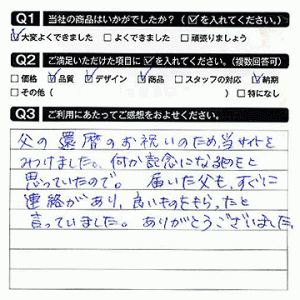 Q1 当社の商品はいかがでしたか?(☑を入れてください。)
☑大変よくできました □よくできました □頑張りましょう
Q2 ご満足いただけた項目に☑を入れてください。(複数回答可)
□価格 ☑品質 ☑デザイン ☑商品 □スタッフの対応 ☑納期
□その他( )□特になし
Q3 ご利用にあたってご感想をおよせください。
父の還暦のお祝いのため、当サイトを
みつけました。何か記念になる物をと
思っていたので。 届いた父も、すぐに
連絡があり、良いものをもらったと
言っていました。ありがとうございました。